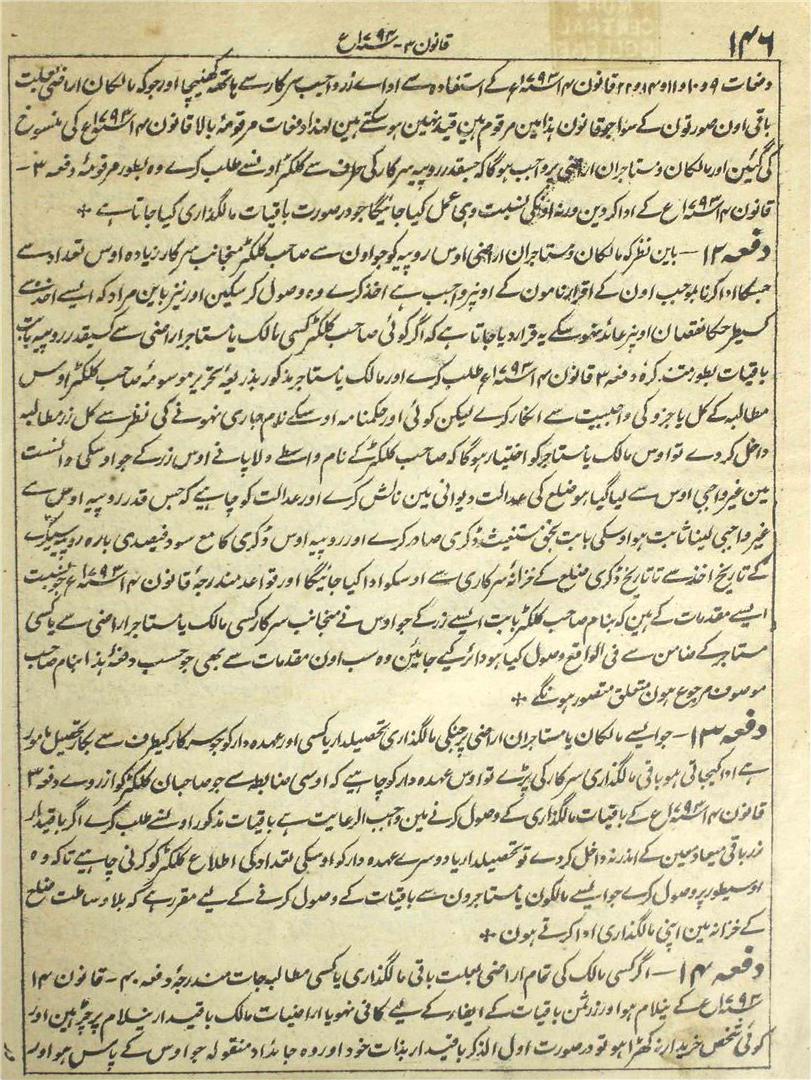 ۱۴۶
قانون ۳ - سنہ ۱۷۹۴ع
دفعات ۹ و ۱۰ و ۱۱ و ۱۴ و ۲۲ قانون ۱۴ سنہ ۱۷۹۳ع کے استفادہ سے اداے زر واجب سرکار سے ہاتھہ کھینچا اور جو کہ مالکان اراضی بعلت
باقی اون صورتون کے سوا جو قانون ہذا مین مرقوم ہین قید نہین ہو سکتے ہین لہذا دفعات مرقومۂ بالا قانون ۱۴ سنہ ۱۷۹۳ع کی منسوخ
کی گئین اور مالکان و مستاجران اراضی پر واجب ہوگا کہ جسقدر روپیہ سرکار کی طرف سے کلکٹر اونسے طلب کرے وہ بطور مرقومۂ دفعہ ۳ -
قانون ۱۴ سنہ ۱۷۹۳ع کے ادا کر دین ورنہ اونکی نسبت وہی عمل کیا جائیگا جو در صورت باقیات مالگذاری کیا جاتا ہے +
دفعہ ۱۲ - باین نظر کہ مالکان و مستاجران اراضی اوس روپیہ کو جو اون سے صاحب کلکٹر منجانب سرکار زیادہ اوس تعداد سے
جسکا ادا کرنا بموجب اون کے اقرارنامون کے اونپر واجب ہے اخذ کرے وہ وصول کر سکین اور نیز باین مراد کہ ایسے اخذ سے
کسیطرحکا نقصان اونپر عائد نہو سکے یہ قرار دیا جاتا ہے کہ اگر کوئی صاحب کلکٹر کسی مالک یا مستاجر اراضی سے کسیقدر روپیہ بابت
باقیات بطور متذکرۂ دفعہ ۳ قانون ۱۴ سنہ ۱۷۹۳ع طلب کرے اور مالک یا مستاجر مذکور بذریعۂ تحریر موسومۂ صاحب کلکٹر اوس
مطالبہ کے کل یا جزو کی واجبیت سے انکار کرے لیکن کوئی اور حکمنامہ اوسکے نام جاری نہونے کی نظر سے کل زر مطالبہ
داخل کر دے تو اوس مالک یا مستاجر کو اختیار ہوگا کہ صاحب کلکٹر کے نام واسطے دلا پانے اوس زر کے جو اوسکی دانست
مین غیر واجبی اوس سے لیا گیا ہو ضلع کی عدالت دیوانی مین نالش کرے اور عدالت کو چاہیے کہ جس قدر روپیہ اوس سے
غیر واجبی لینا ثابت ہو اوسکی بابت بحق مستغیث ڈگری صادر کرے اور روپیہ اوس ڈگری کا مع سود فیصدی بارہ روپیہ سیکڑے
کے تاریخ اخذ سے تا تاریخ ڈگری ضلع کے خزانۂ سرکاری سے اوسکو ادا کیا جائیگا اور قواعد مندرجۂ قانون ۱۴ سنہ ۱۷۹۳ع جو نسبت
ایسے مقدمات کے ہین کہ بنام صاحب کلکٹر بابت ایسے زر کے جو اوس نے منجانب سرکار کسی مالک یا مستاجر اراضی سے یا کسی
مستاجر کے ضامن سے فی الواقع وصول کیا ہو دائر کیے جائین وہ سب اون مقدمات سے بھی جو حسب دفعۂ ہذا بنام صاحب
موصوف مرجوع ہون متعلق متصور ہونگے +
دفعہ ۱۳ - جو ایسے مالکان یا مستاجران اراضی پر جنکی مالگذاری تحصیلدار یا کسی اور عہدہ دار کو جو سرکار کیطرف سے بکار تحصیل مامور
ہے ادا کیجاتی ہو باقی مالگذاری سرکار کی پڑے تو اوس عہدہ دار کو چاہیے کہ اوسی ضابطہ سے جو صاحبان کلکٹر کو ازروے دفعہ ۳
قانون ۱۴ سنہ ۱۷۹۳ع کے باقیات مالگذاری کے وصول کرنے مین واجب الرعایت ہے باقیات مذکور اونسے طلب کرے اگر باقیدار
زر باقی میعاد معین کے اندر نہ داخل کر دے تو تحصیلدار یا دوسرے عہدہ دار کو اوسکی تعداد کی اطلاع کلکٹر کو کرنی چاہیے تاکہ وہ
اوسیطور پر وصول کرے جو ایسے مالکون یا مستاجرون سے باقیات کے وصول کرنے کے لیے مقرر ہے کہ بلا وساطت ضلع
کے خزانہ مین اپنی مالگذاری ادا کرتے ہون +
دفعہ ۱۴ - اگر کسی مالک کی تمام اراضی بعلت باقی مالگذاری یا کسی مطالبہ جات مندرجۂ دفعہ ۴۰ - قانون ۱۴
سنہ ۱۷۹۳ع کے نیلام ہو اور زر ثمن باقیات کے ایفاء کے لیے کافی نہو یا اراضیات مالک باقیدار نیلام پر چڑہین اور
کوئی شخص خریدار نہ کھڑا ہو تو در صورت اول الذکر باقیدار بذات خود اور وہ جائداد منقولہ جو اوس کے پاس ہو اور